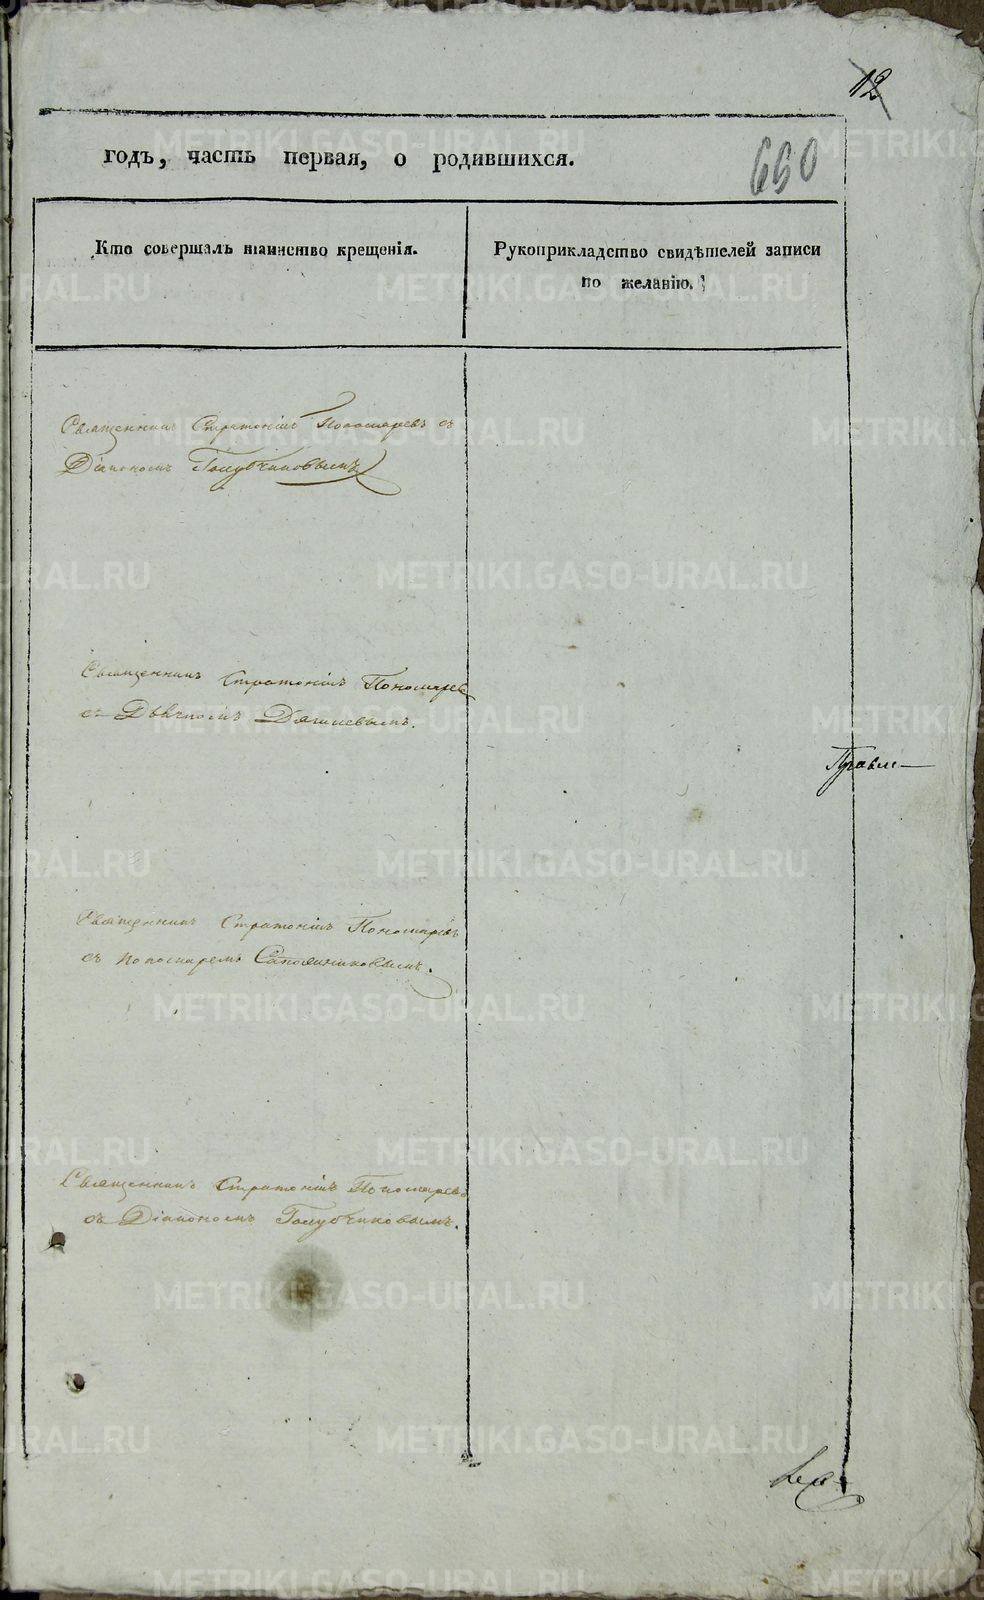 12
годъ, часть первая, о родившихся.
660
Кто совершалъ таинство крещенія.
Рукоприкладство свидѣтелей записи
по желанію.
Священникъ Стратоникъ Пономаревъ съ
Діакономъ Голубчиковымъ
Священникъ Стратоникъ Пономаревъ
съ Дьячкомъ
Правле—
Священникъ Стратоникъ Пономаревъ
съ пономаремъ Сапожниковымъ.
Священникъ Стратоникъ Пономаревъ
съ Діакономъ Голубчиковымъ.
METRIKI.GASO-URAL.RU